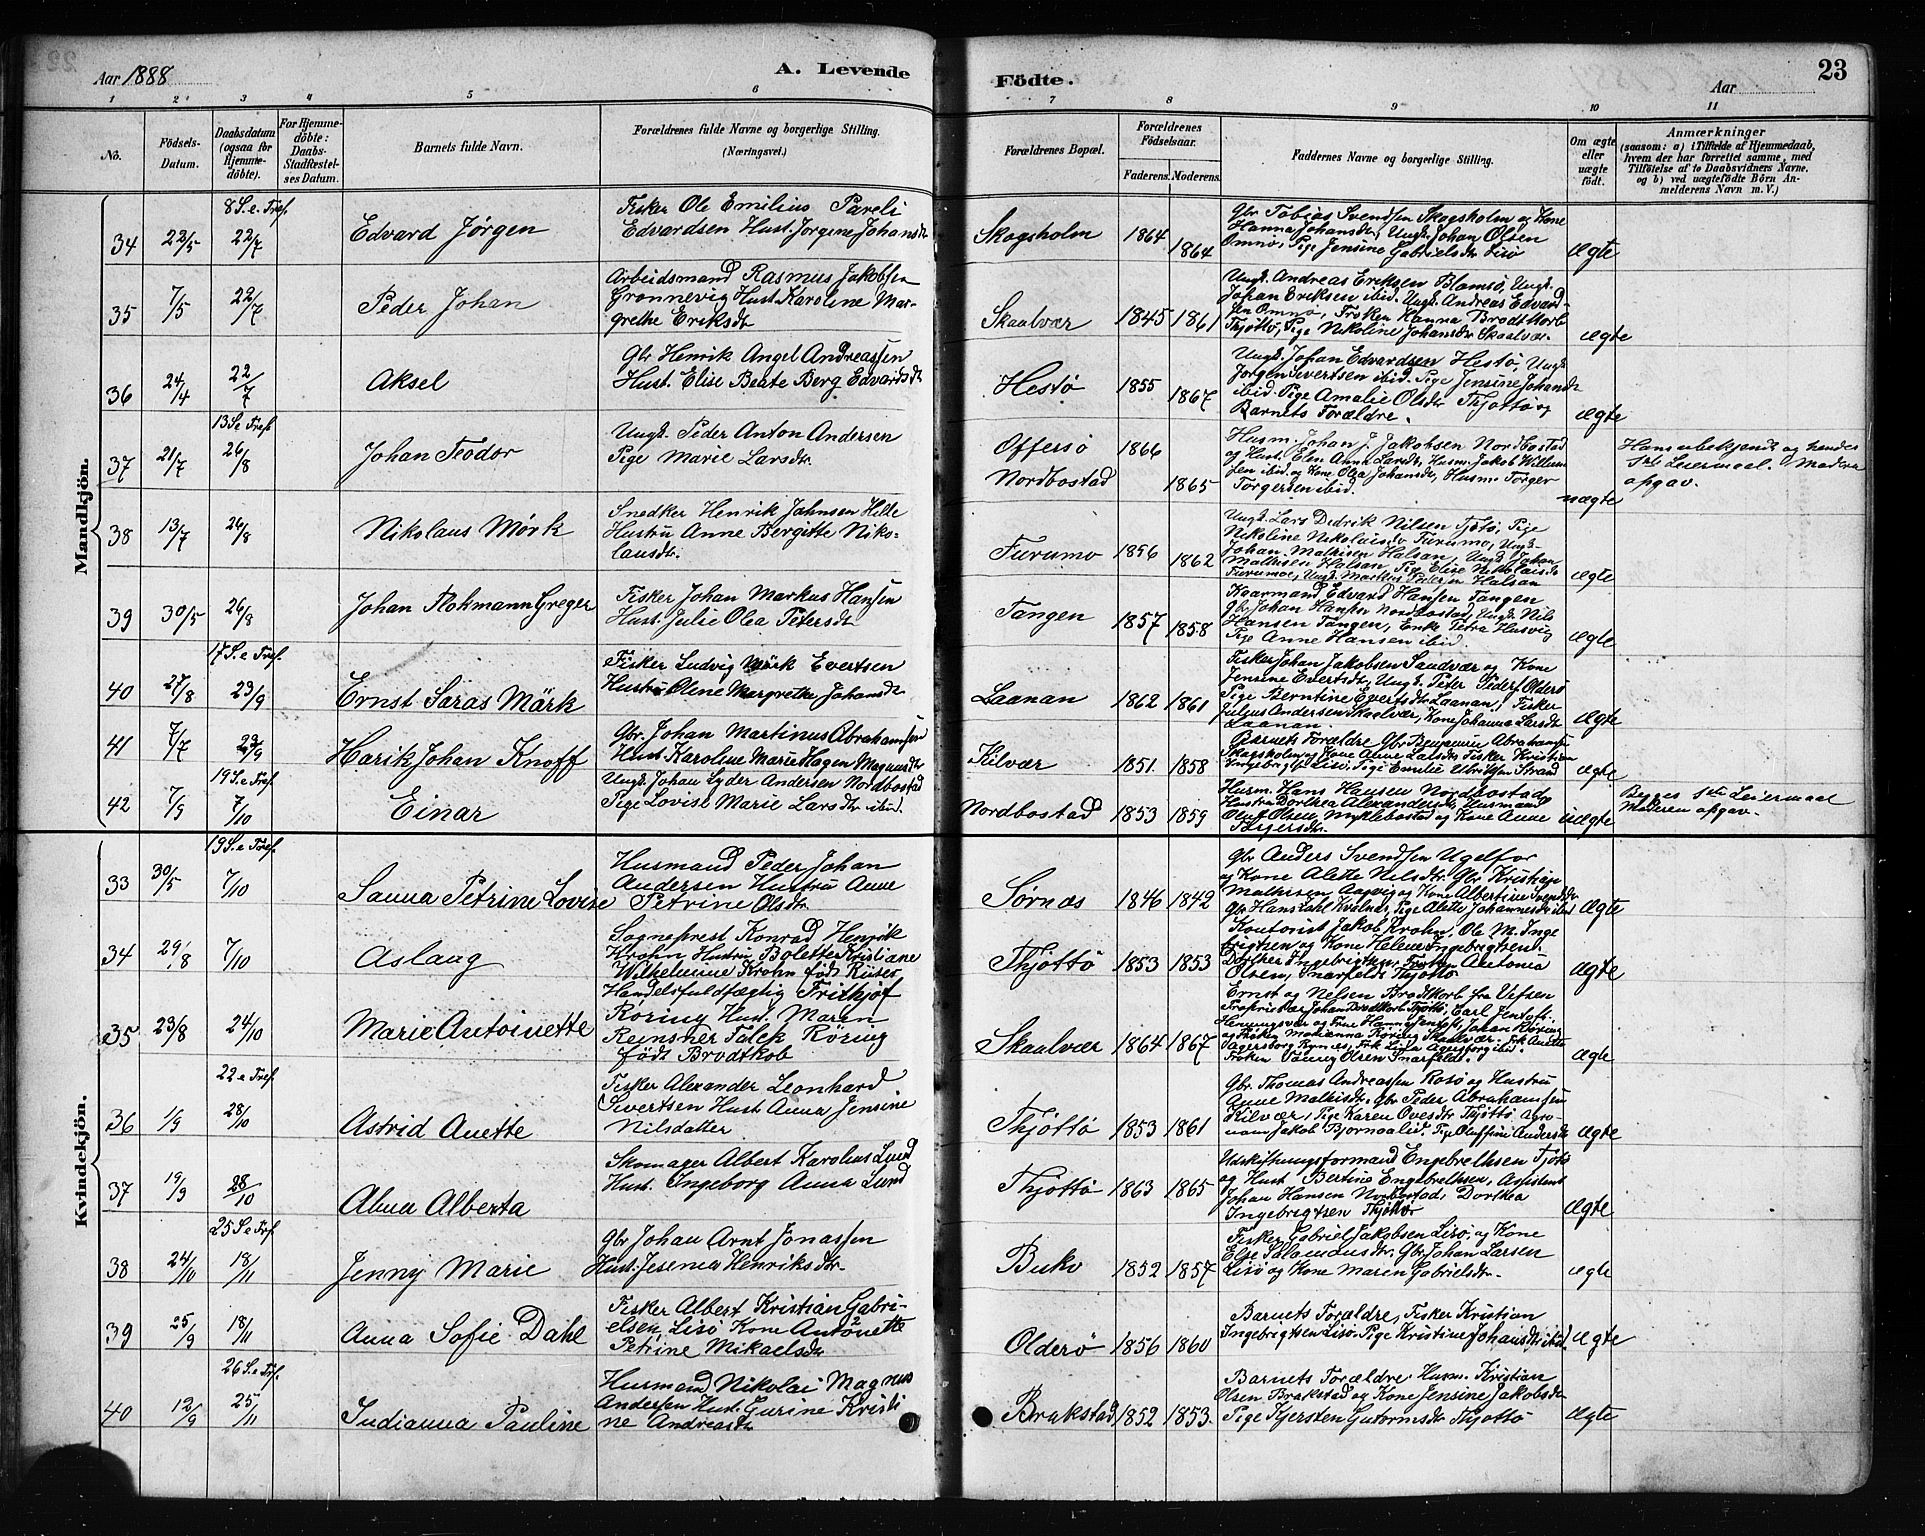 Aar 1888
A. Levende
Födte.
Aar
23
1 2 3 4 5 6 7 8 9 10 11
No.
Födsels-Datum.
Daabsdatum (ogsaa for Hjemme-döbte).
For Hjemme-döbte: Daabs-Stadfæstel-ses Datum.
Barnets fulde Navn.
Forældrenes fulde Navne og borgerlige Stilling.
(Næringsvei.)
Forældrenes Bopæl.
Forældrenes Födselsaar.
Faderens. Moderens.
Faddernes Navne og borgerlige Stilling.
Om ægte eller uægte födt.
Anmærkninger
(saasom: a) i Tilfælde af Hjemmedaab,
hvem der har forrettet samme, med
Tilföielse af to Daabsvidners Navne,
og b) ved uægtefödte Börn An-
melderens Navn m. V.)
Mandkjön.
8 S. e. Tref.
34 22/5 22/7 Edvard Jørgen
Fisker Ole Emilius Pareli
Edvardsen Hust. Jørgine Johansdr
Skogsholm 1864 1864
Gbr Tobias Svendsen Skogsholm og Kone
Hanna Johansdr, Ungk. Johan Olsen
Omnø, Pige Jensine Gabrielsdr Lisø
ægte
35 7/5 22/7 Peder Johan
Arbeidsmand Rasmus Jakobsen
Grønnevig Hust. Karoline Mar-
grethe Eriksdr
Skaalvær 1845 1861
Ungk. Andreas Eriksen Blomsø, Ungk.
Johan Eriksen ibid. Ungk. Andreas Edvard-
sen Omnø, Frøken Hanna Brodtkorb
Thjøttø, Pige Nikoline Johansdr Skaalvær.
ægte
36 24/4 22/7 Aksel
Gbr Henrik Angel Andreassen
Hust. Elise Beate Berg Edvardsdr
Hestø 1855 1867
Ungk. Johan Edvardsen Hestø, Ungk
Jørgen Sivertsen ibid. Pige Jensine Johansdr
ibid. Pige Amalie Olsdr Thjøttø og
Barnets Forældre.
ægte
13 S e Tref
37 21/7 26/8 Johan Teodor
Ungk. Peder Anton Andersen
Pige Marie Larsdr.
Offersø
Nordbostad
1866 1865
Husm. Johan J. Jakobsen Nordbostad
og Hust. Elen Anna Larsdr, Husm. Jakob Willum-
sen ibid. og Kone Olea Johansdr, Husm. Torger
Torgersen ibid.
uægte
Hans ubekjendt og hendes
1ste Leiermaal. Moderen
opgav.
38 13/7 26/8 Nikolaus Mørk
Snedker Henrik Johnsen Hilde
Hustru Anne Bergitte Niko-
lausdr.
Furumo 1856 1862
Ungk. Lars Didrik Nilsen Tjøtø, Pige
Nikoline Nikolaisdr Furumo, Ungk.
Johan Mathisen Halsan, Ungk. Johan
Mathisen Halsan, Pige Elise Nikolaisdr
Furumoe, Ungk. Markus Pedersen Halsan
ægte
39 30/5 26/8 Johan Rokmann Greger
Fisker Johan Markus Hansen
Hust. Julie Olea Petersdr
Tangen 1857 1858
Kaarmand Edvard Hansen Tangen
Gbr. Johan Hansen Nordbostad, Ungk. Nils
Hansen Tangen, Enke Petra Husvig
Pige Anne Hansen ibid.
ægte
17 S. e Tref.
40 27/8 23/9 Ernst Saras Mārk
Fisker Ludvig Mørk Evertsen
Hustru Oline Margrethe Johansdr
Laanan 1862 1861
Fisker Johan Jakobsen Sandvær og Kone
Jensine Evertsdr, Ungk. Peter Peders. Olderø
Pige Berntine Evertsdr Laanan, Fisker
Julius Andersen Skaalvær, Kone Johanna Larsdr
Laanan
ægte
41 7/7 23/9 Harik Johan Knoff
Gbr. Johan Martinus Abrahamsen
Hust. Karoline Marie Hagen Magnusdr
Kilvær 1851. 1858
Barnets Forældre Gbr Benjamin Abrahamsen
Skogsholm og Kone Anne Larsdr Fisker Kristian
Ingebrigts. Lisø, Pige Emilie Ulriksen Strand
ægte
19 S. e Tref
42 7/9 7/10 Einar
Ungk. Johan Lyder Andersen Nordbostad
Pige Lovise Marie Larsdr ibid.
Nordbostad 1853 1859
Husm. Hans Hansen Nordbostad
Hustru Dorthea Alexandersdr, Husmand
Oluf Olsen, Myklebostad og Kone Anne
uægte
Begges 1ste Leiermaal
Moderen opgav.
Kvindekjön.
19 S. e. Tref.
33 30/5 7/10 Sanna Petrine Lovise
Husmand Peder Johan
Andersen Hustru Anne
Petrine Olsdr.
Sørnæs 1846 1842
Gbr Anders Svendsen Ugelfor
og Kone Alette Nilsdr. Gbr Kristian
Mathisen Aagvig og Kone Albertine Svendsdr
Gbr Hans Dahl Kvalnæs, Pige Alette Johannesdr ibid
ægte
34 29/8 7/10 Aslaug
Sogneprest Konrad Henrik
Krohn Hustru Bolette Kristiane
Wilhelmine Krohn født
Thjøttø 1853 1853
Kontorist Jakob Krohn, Ole M. Inge
brigtsen og Kone Helene Ingebrigtsen
Dorthea Ingebrigtsen, Frøken Antonia
Olsen, Snarfeldt Thjøttø
ægte
35 23/8 24/10 Marie Antoinette
Handelsfuldfægtig Frithjof
Røring Hust. Maren
Reinsner Falck Røring
født Brodtkob
Skaalvær 1864 1867
Ernst og Nelsen Brodtkorb fra Vefsen
Johan Brodtkorb Thjøttø, Carl Jentoft
Henningsvær og Frue Hanna Jentoft, Johan Røring
og Frøken Marianna Røring Skaalvær. Frk. Anette
Agersborg Rynes, Frk Lina Agersborg ibid.
Frøken Fanny Olsen Snarfeldt
ægte
22 e Tref.
36 1/9 28/10 Astrid Anette
Fisker Alexander Leonhard
Sivertsen Hust. Anna Jensine
Nilsdatter
Thjøttø 1853 1861
Gbr. Thomas Andreassen Rosø og Hustru
Anne Mathisdr, Gbr Peder Abrahamsen
Kilvær, Pige Karen Ovesdr Thjøttø Agro-
nom Jakob Bjørnaalid. Pige Oluffine Andersdr
ægte
37 19/9 28/10 Alma Alberta
Skomager Albert Karolius Lund
Hust. Ingeborg Anna Lund
Thjøttø 1863 1865
Udskiftningsformand Engebrethsen Tjøtø
og Hust Bertine Engebrethsen, Assistent
Johan Hansen Nordbostad, Dorthea
Ingebrigtsen Thjøttø
ægte
25 S e Tref
38 24/10 18/11 Jenny Marie
Gbr Johan Arnt Jonassen
Hust. Jesenia Henriksdr.
Bukø 1852 1857
Fisker Gabriel Jakobsen Lisø, og Kone
Else Salomonsdr. Gbr. Johan Larsen
Lisø og Kone Maren Gabrielsdr.
ægte
39 25/9 18/11 Anna Sofie Dahl
Fisker Albert Kristian Gabri-
elsen Lisø Kone Antonette
Petrine Mikaelsdr
Olderø 1856 1860
Barnets Forældre, Fisker Kristian
Ingebrigtsen Lisø. Pige Kristine Johansdr ibid.
ægte
26 S. e Tref.
40 12/9 25/11 Indianna Pauline
Husmand Nikolai Magnus
Andersen Hust. Gurine Kristi
ne Andreasdr
Brakstad 1852 1853.
Barnets Forældre. Husm. Kristian
Olsen Brakstad og Kone Jensine Jakobsdr
Pige Kjersten Guttormsdr Thjøttø
ægte